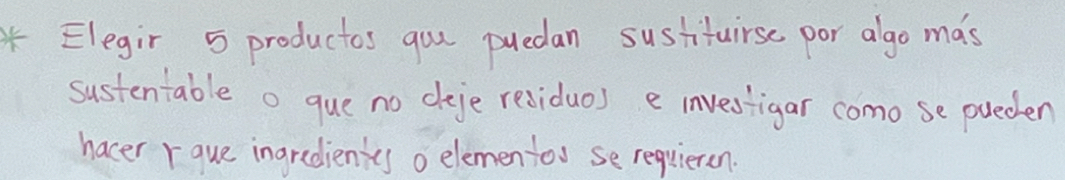 * Elegir 5 productos que puedan sustituirse por algo más
sustentable o que no deje residuos e investigar como se pueden
hacer y que ingredientes o elementos se requieren.